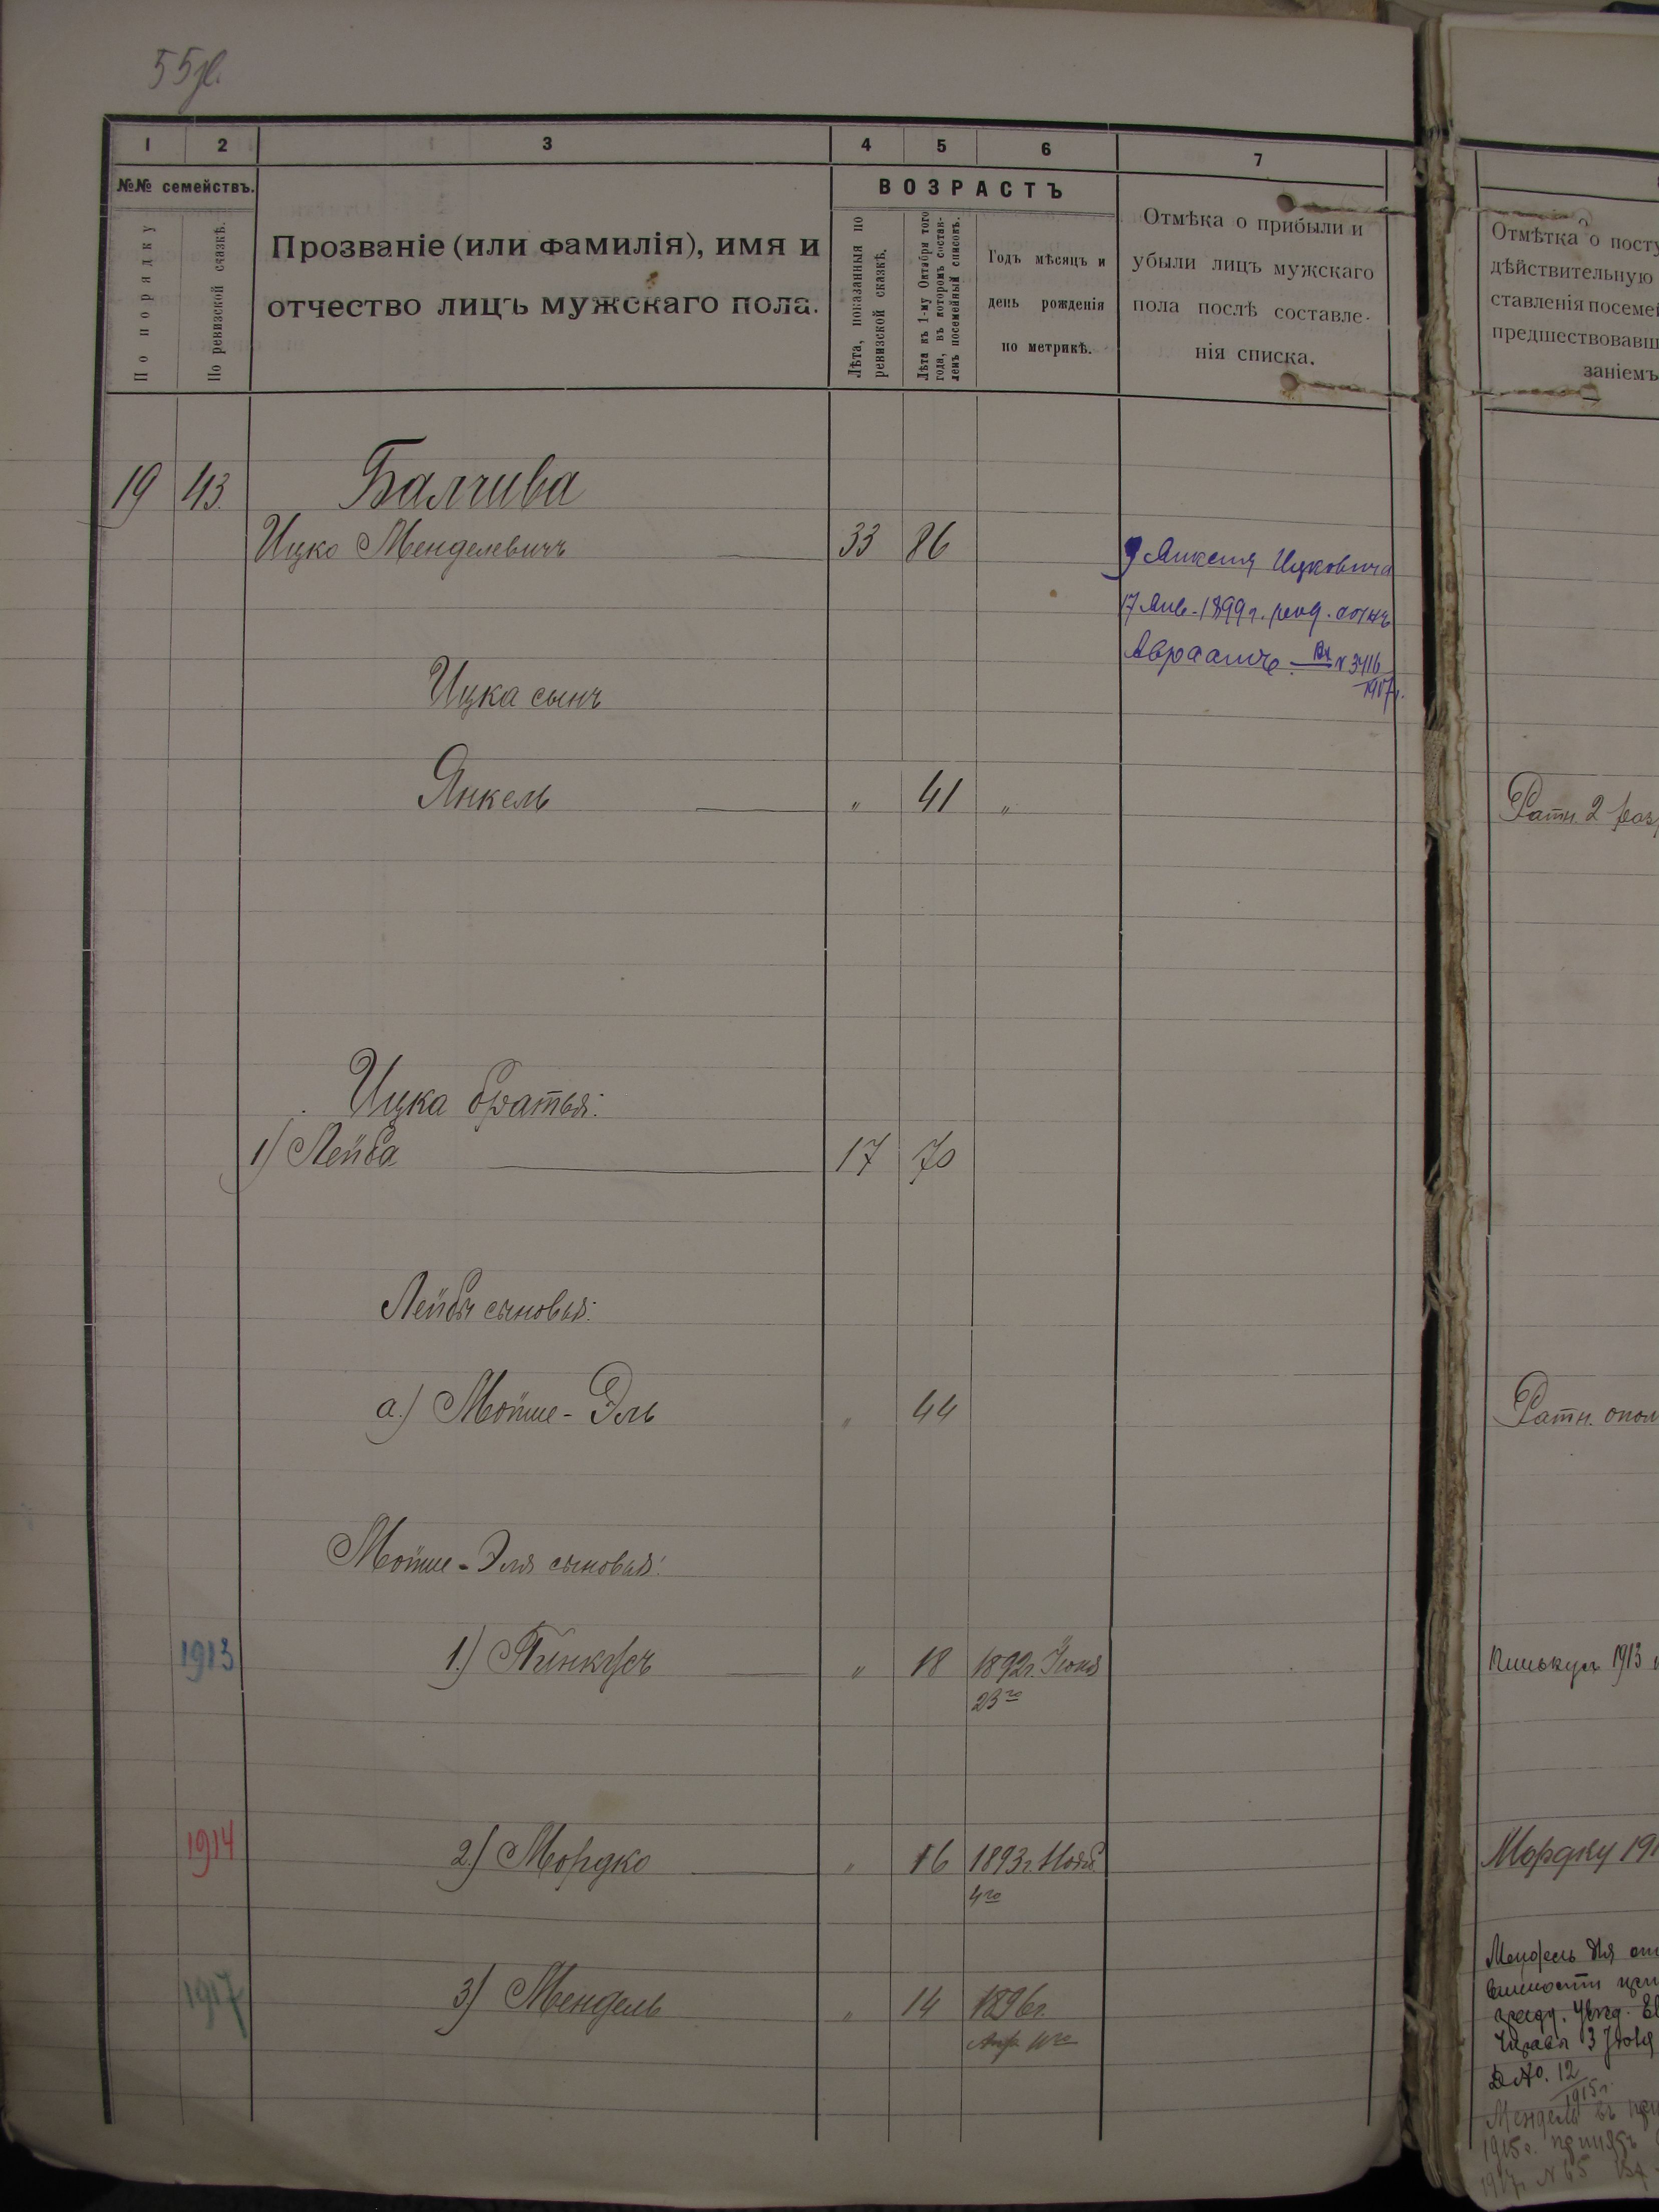 55
1 2 3 4 5 6 7
№№ семействъ.
По порядку
По ревизской сказкѣ.
Прозваніе (или фамилія), имя и
отчество лицъ мужскаго пола.
ВОЗРАСТЪ
Лѣта, показанныя по
ревизской сказкѣ.
Лѣта къ 1-му Октября того
года, въ которомъ состав-
ленъ посемейный списокъ.
Годъ мѣсяцъ и
день рожденія
по метрикѣ.
Отмѣка о прибыли и
убыли лицъ мужскаго
пола послѣ составле-
нія списка.
Отмѣтка о посту
дѣйствительную
ставленія посемей
предшествовавш
заніемъ
19 43. Балчива
Ицко Менделевичъ 33 86
У Янкеля Ицковича
17 Янв. 1899 г. род. сынъ
Авраамъ. Вх N 3416
1917 г.
Ицка сынъ
Янкель " 41 "
Ратн. 2 раз
Ицка братья:
1) Лейба 17 70
Лейбы сыновья:
а.) Мойше-Эль " 44
Ратн. опол
Мойше-Эля сыновья:
1913 1.) Пинкусъ " 18 1892 г. Іюня
23го
Пинькусъ 1913
1914 2.) Мордко " 16 1893 г. Нояб.
4го
Мордку 191
1917 3) Мендель " 14 1896 г.
Апр.
Мендель для
3 Іюня
12
1915 г.
Мендель въ
1915 г. принятъ
1917 г. N 65